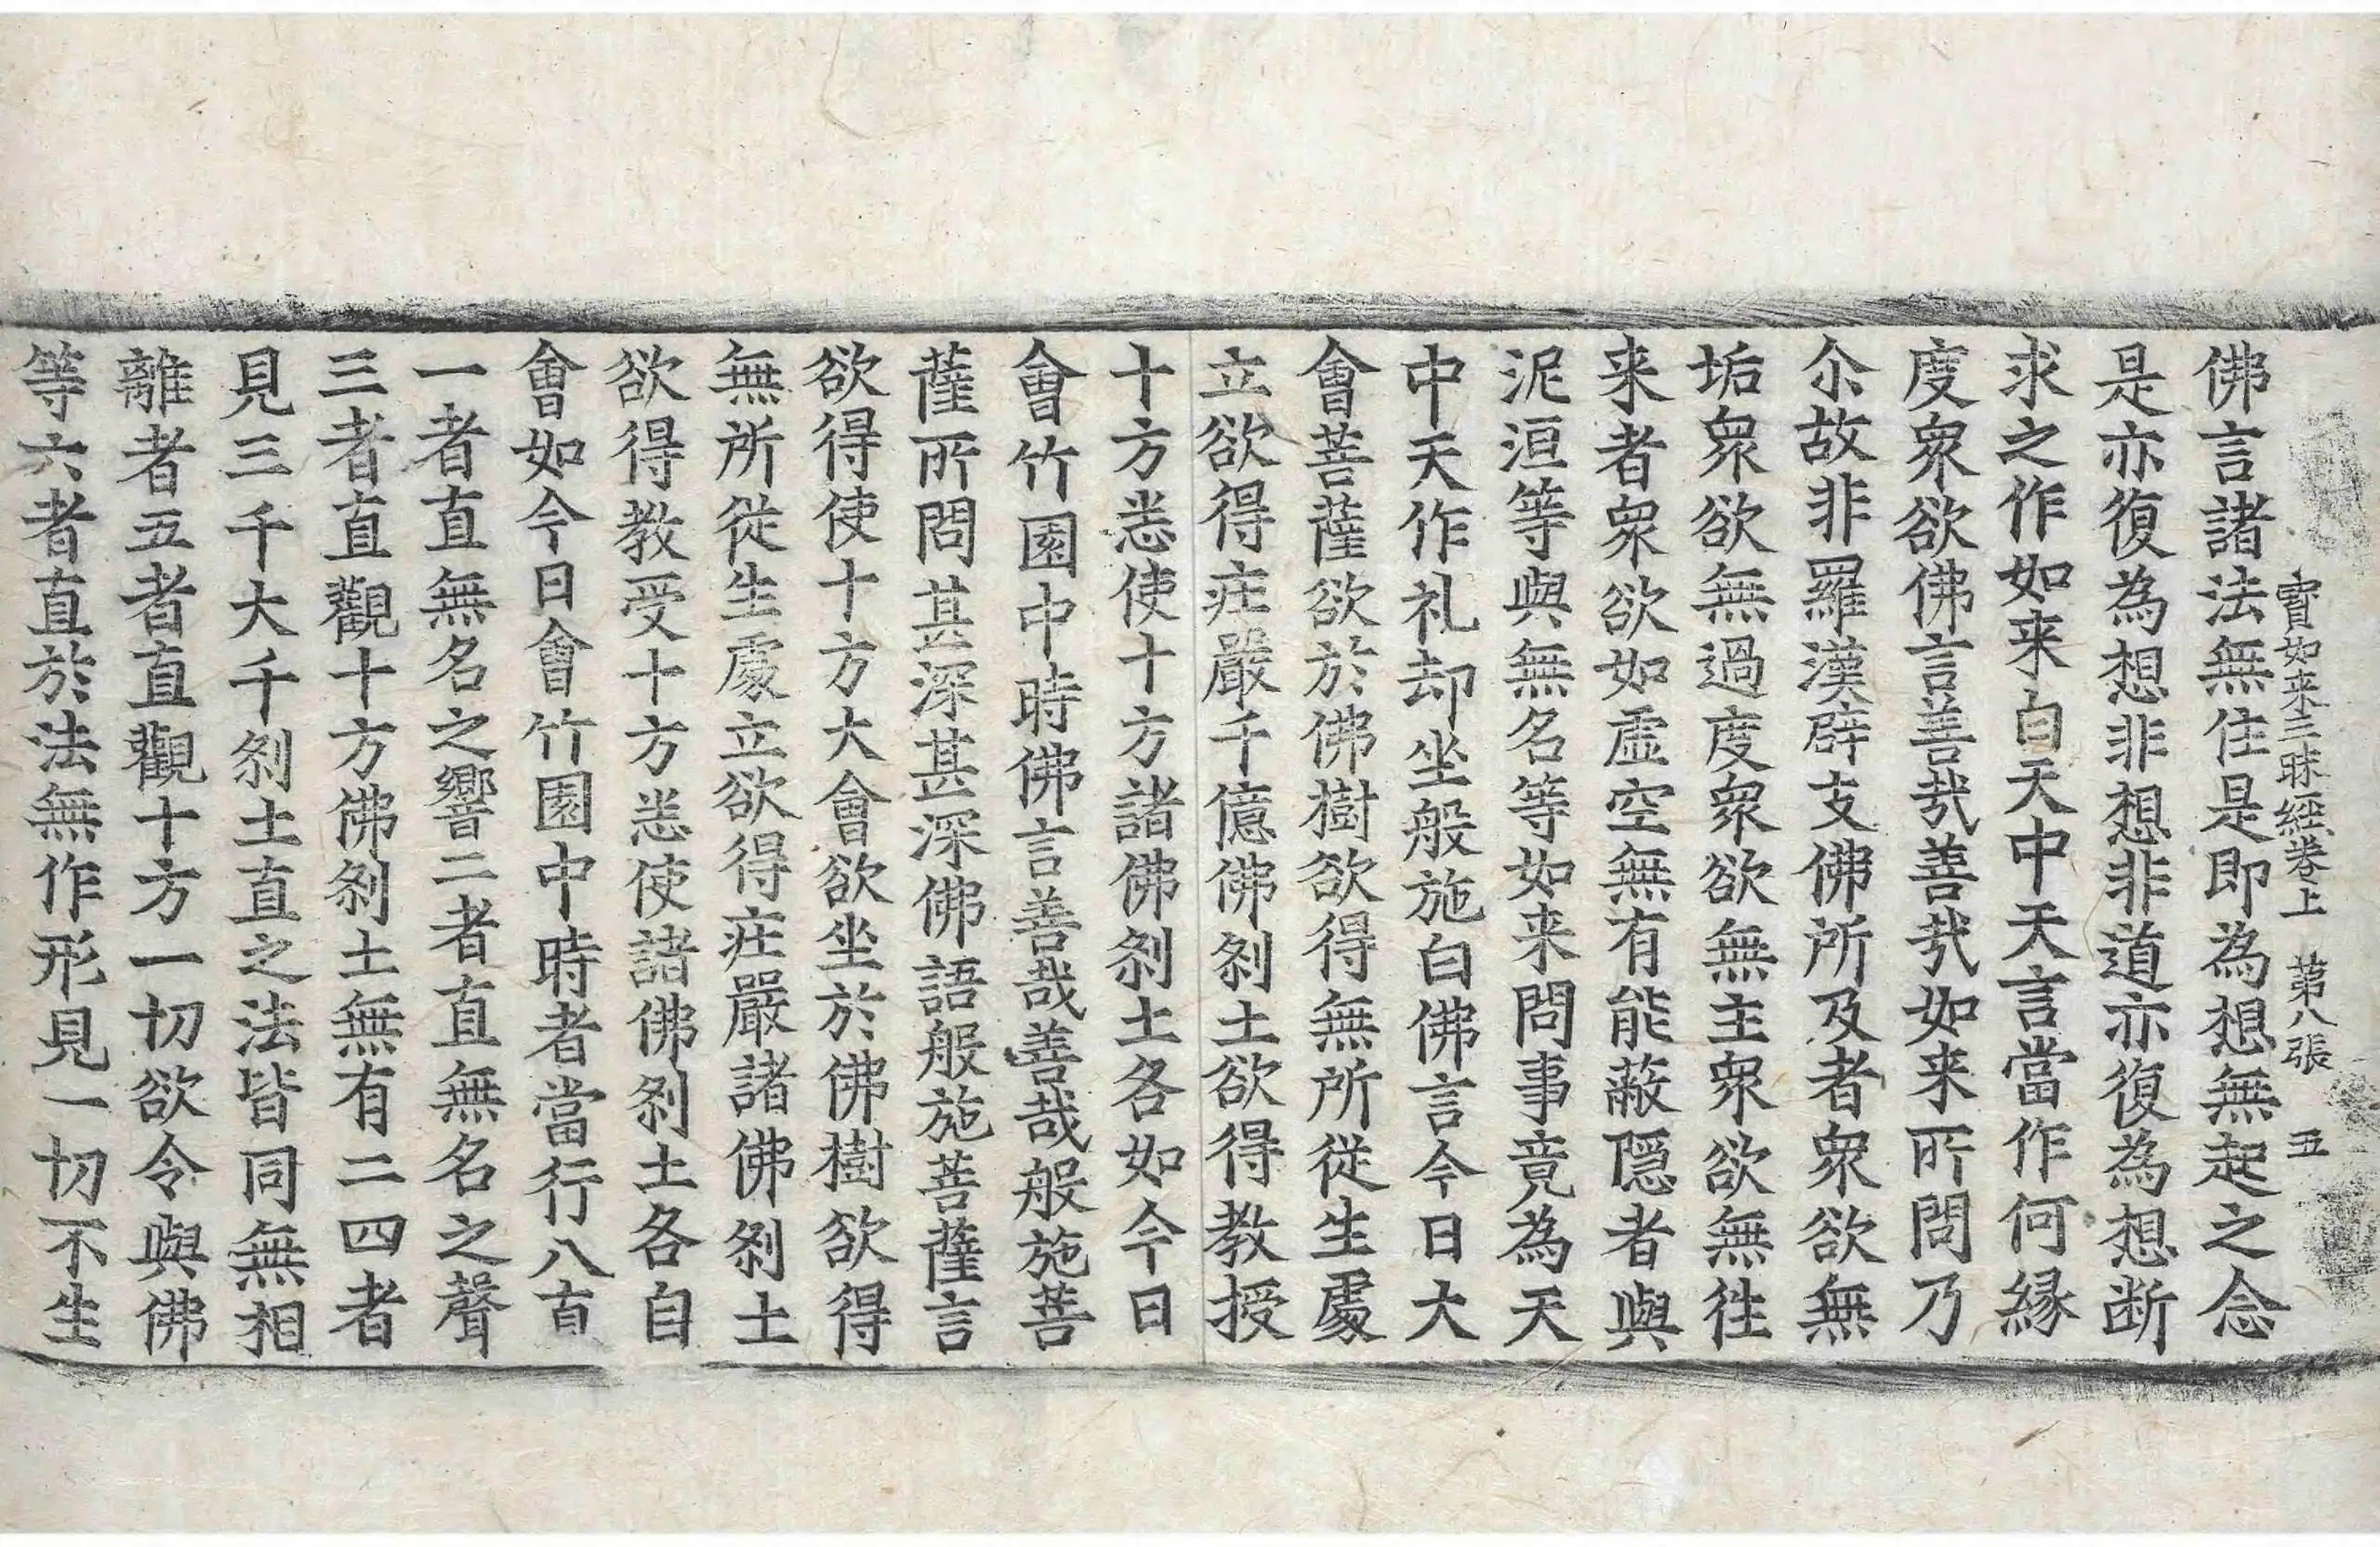 寶如来三昧經卷上　第八張　五
佛言諸法無住是即為想無起之念
是亦復為想非想非道亦復為想断
求之作如来白天中天言當作何緣
度衆欲佛言善㢤善㢤如来所問乃
尒故非羅漢辟支佛所及者衆欲無
垢衆欲無過度衆欲無主衆欲無徃
来者衆欲如虛空無有能蔽隱者與
泥洹等與無名等如来問事竟為天
中天作礼却坐般施白佛言今日大
會菩薩欲於佛樹欲得無所從生處
立欲得庄嚴千億佛刹土欲得教授
十方悉使十方諸佛刹土各如今日
會竹園中時佛言善哉善哉般施菩
薩所問甚深甚深佛語般施菩薩言
欲得使十方大會欲坐於佛樹欲得
無所從生處立欲得庄嚴諸佛刹土
欲得教受十方悉使諸佛刹土各自
會如今日會竹園中時者當行八直
一者直無名之響二者直無名之聲
三者直觀十方佛刹土無有二四者
見三千大千刹土直之法皆同無相
離者五者直觀十方一切欲令與佛
等六者直於法無作形見一切不生